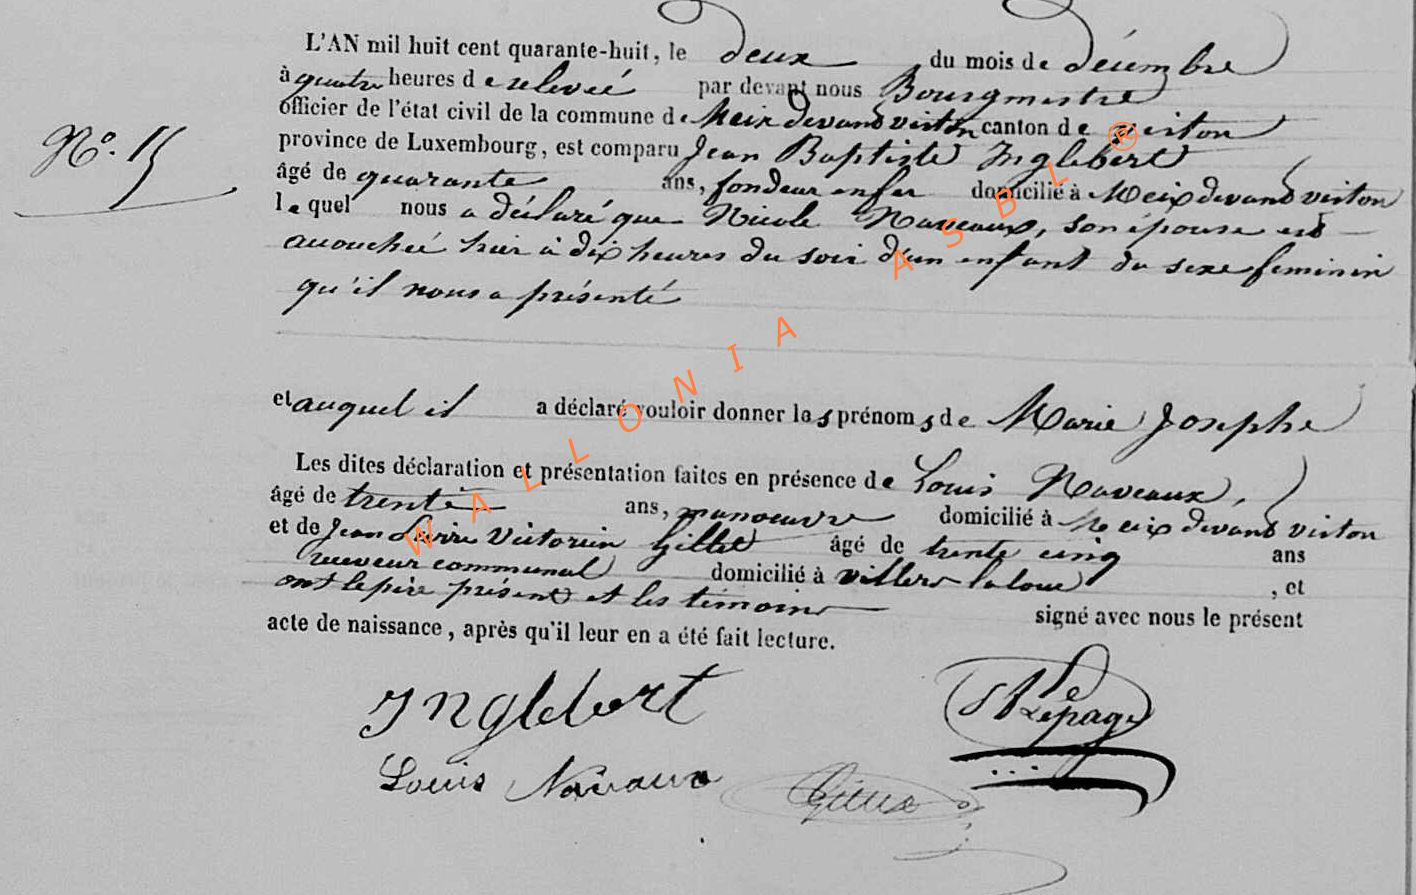 L'AN mil huit cent quarante-huit, le deux du mois de décembre
à quatre heures de relevée par devant nous Bourgmestre
officier de l'état civil de la commune de Meix devand virton canton de virton
N°. 15
province de Luxembourg, est comparu Jean Baptiste Inglebert
âgé de quarante ans, fondeur en fer domicilié à Meix devand virton
lequel nous a déclaré que Nicole Naveaux, son épouse est
accouchée hier à dix heures du soir d'un enfant du sexe feminin
qu'il nous a présenté
et auquel il a déclaré vouloir donner les prénoms de Marie Josephe
Les dites déclaration et présentation faites en présence de Louis Naveaux,
âgé de trente ans, manoeuvre domicilié à Meix devand virton
et de Jean Pierre Victorin Gillet âgé de trente cinq ans
receveur communal domicilié à villers laloue, et
ont le père présent et les témoins signé avec nous le présent
acte de naissance, après qu'il leur en a été fait lecture.
Inglebert
Lepage
Louis Navaux
WALLONIA ASBL ®